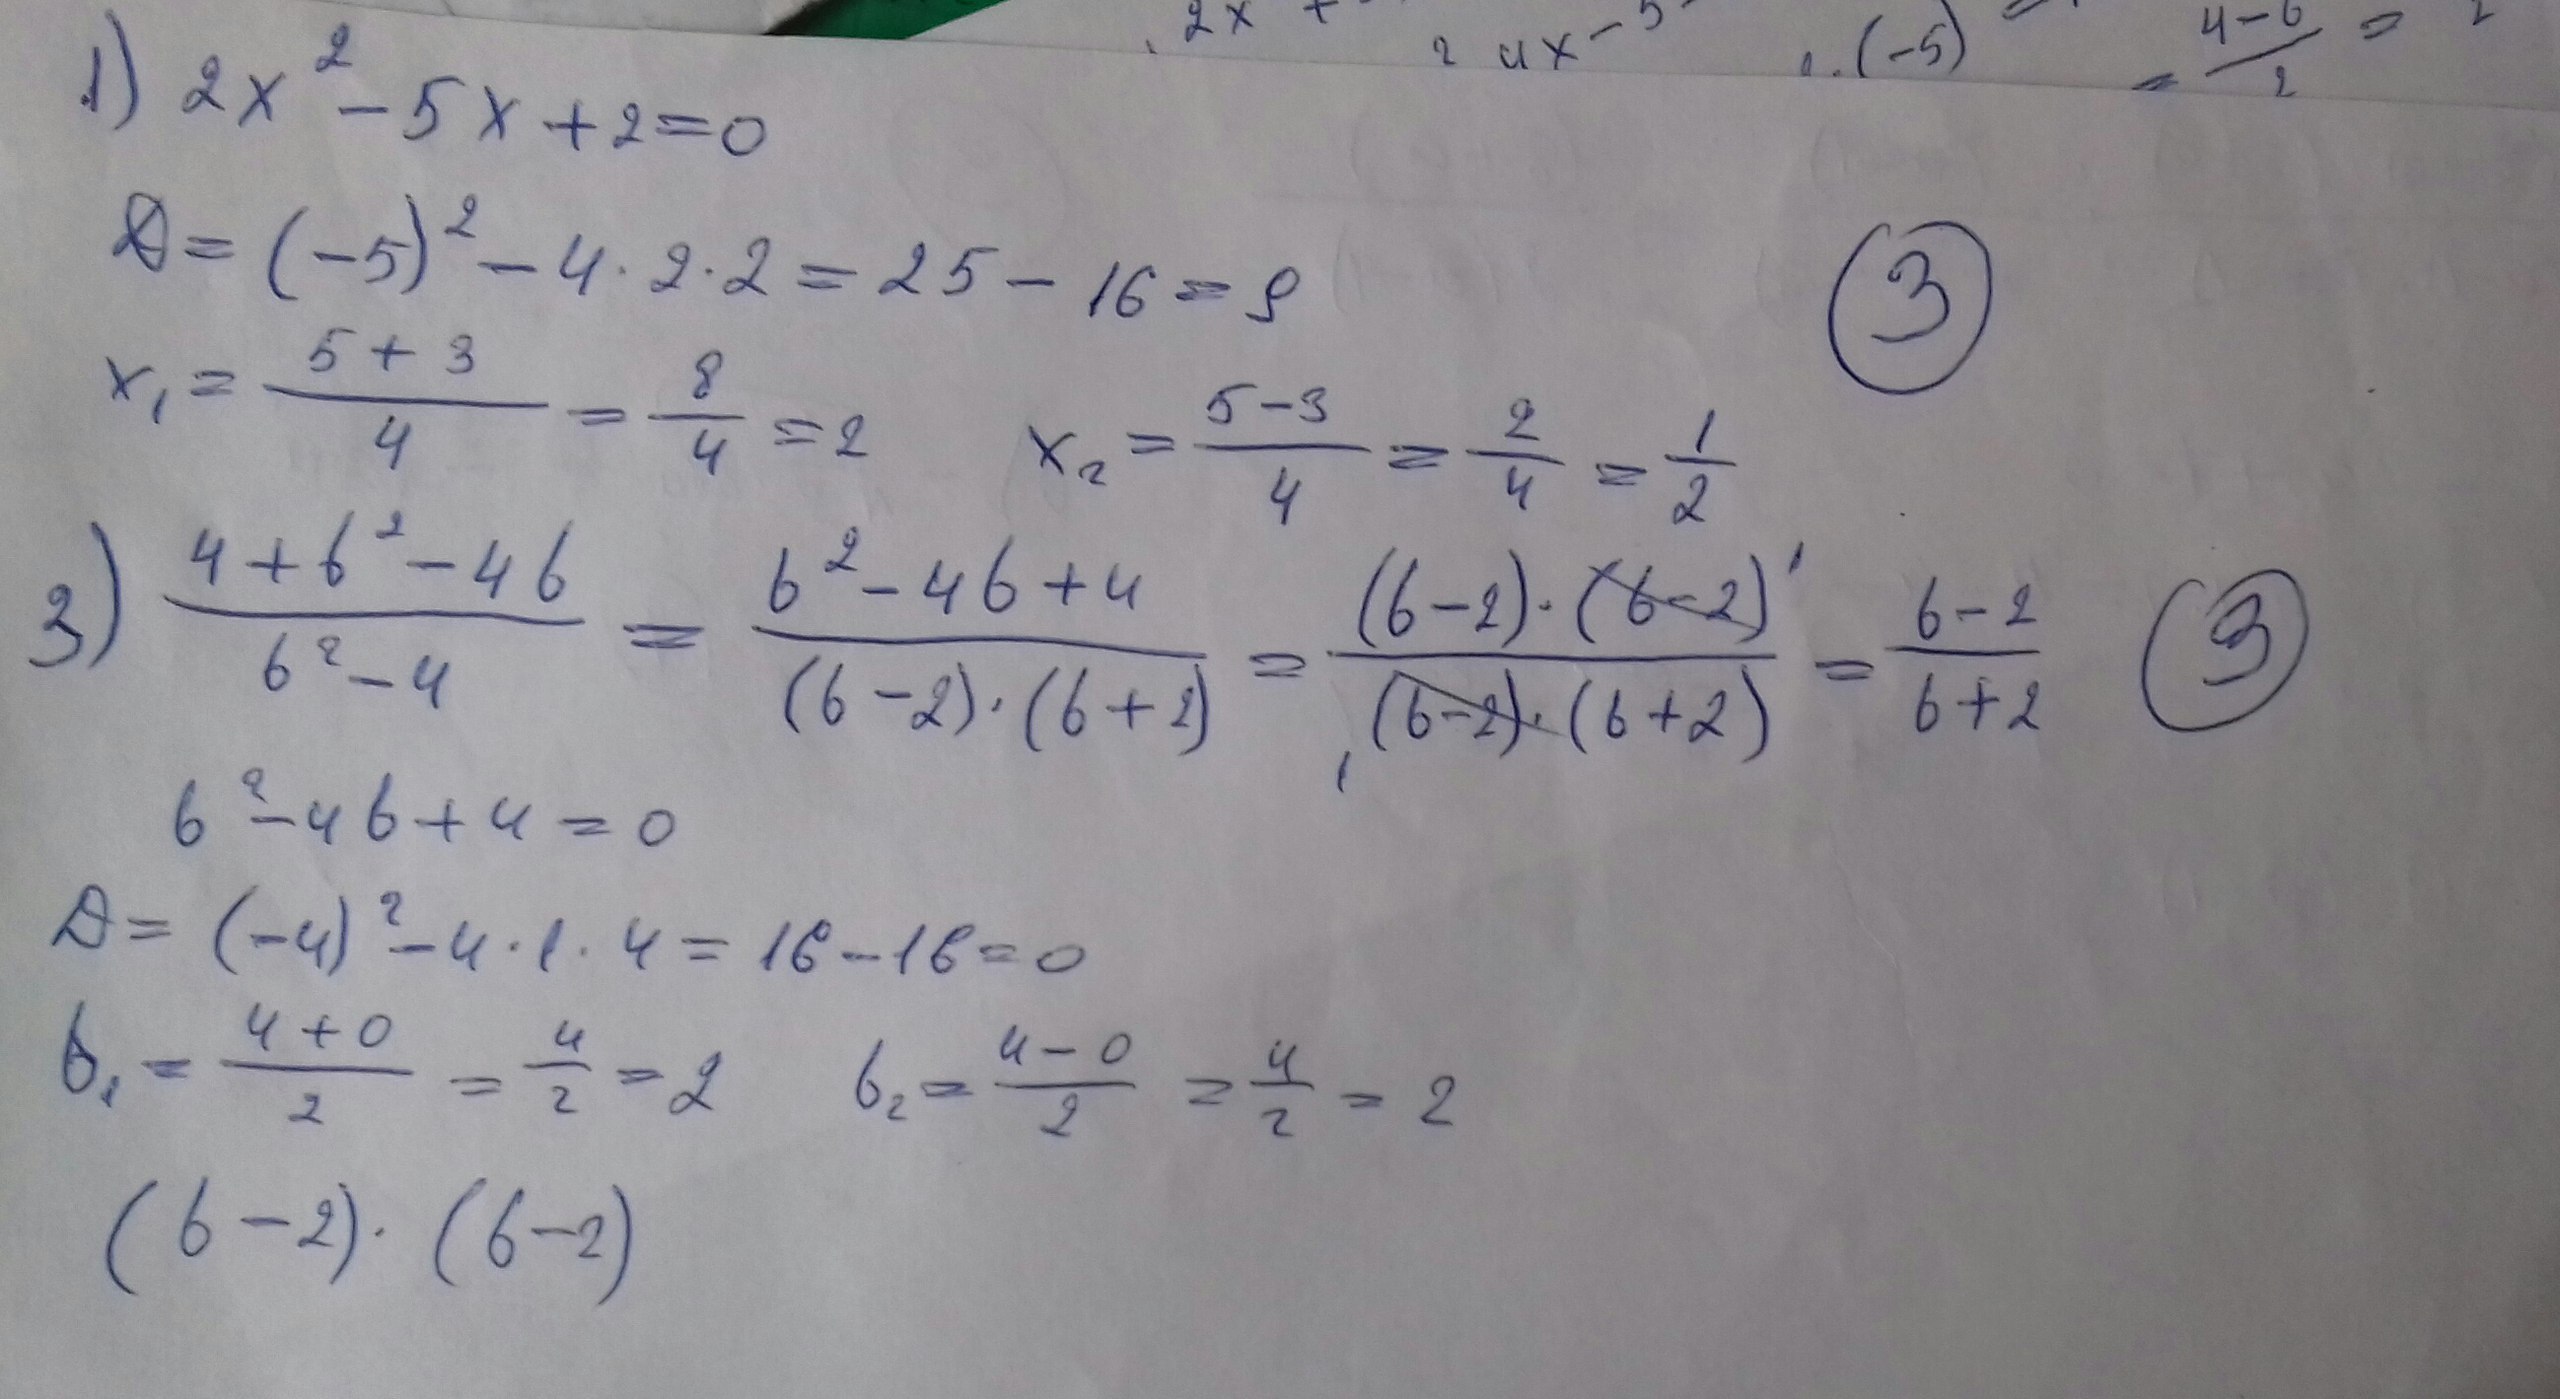 2x +
2 4x - 5
. (-5) =
= 4-6/2 = 2
1) 2x² - 5x + 2 = 0
D = (-5)² - 4 · 2 · 2 = 25 - 16 = 9
③
x₁ = 5+3/4 = 8/4 = 2 x₂ = 5-3/4 = 2/4 = 1/2
3) 4+b²-4b/b²-4 = b²-4b+4/(b-2)·(b+2) = (b-2)·(b-2)¹/₁(b-2)·(b+2) = b-2/b+2 ③
b² - 4b + 4 = 0
D = (-4)² - 4 · 1 · 4 = 16 - 16 = 0
b₁ = 4+0/2 = 4/2 = 2 b₂ = 4-0/2 = 4/2 = 2
(b-2) · (b-2)